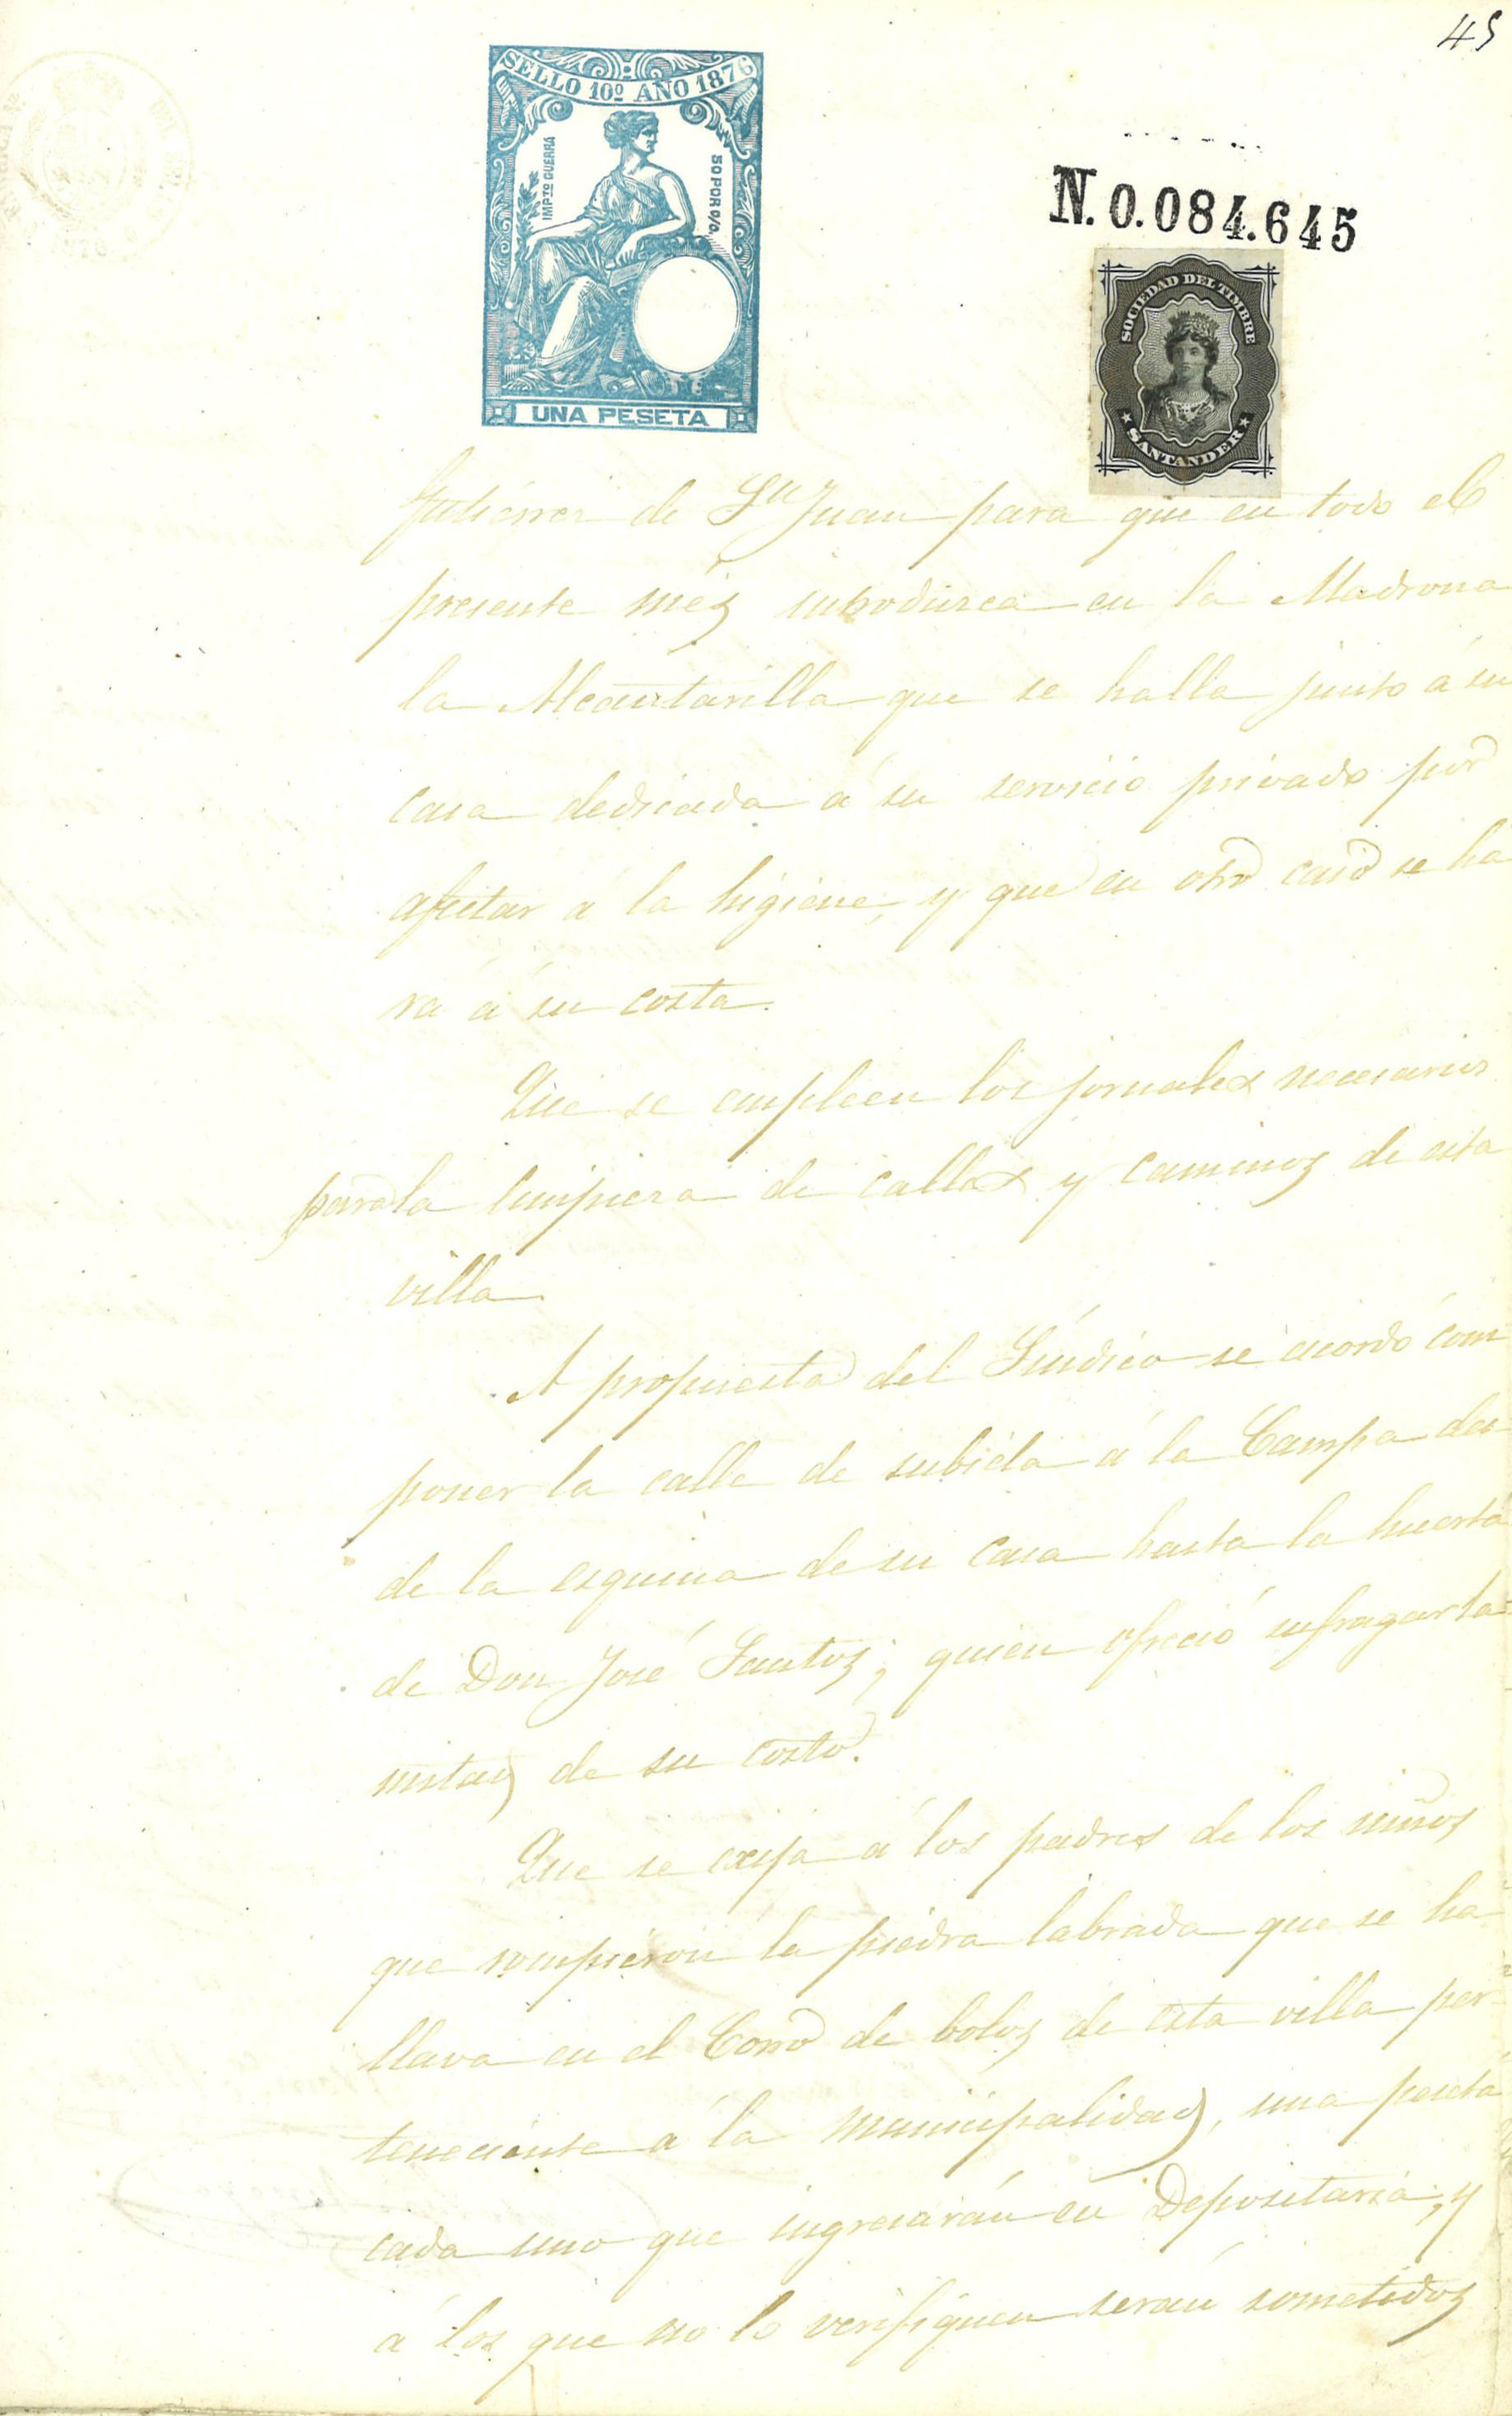 45
SELLO 10º AÑO 1876
IMPTO GUERRA
50 POR 0/0.
UNA PESETA
N. 0.084.645
SOCIEDAD DEL TIMBRE
SANTANDER
Gutiérrez de Sn Juan para que en todo el
presente més introduzca en la Madrona
la Alcantarilla que se halla junto á su
casa dedicada á su servicio privado por
afectar á la higiene, y que en otro caso se ha
rá á su costa.
Que se empleen los jornales necesarios
para la limpieza de calles y caminos de esta
villa.
A propuesta del Síndico se acordó com
poner la calle de subida á la Campa des
de la esquina de su casa hasta la huerta
de Don José Santos; quien ofreció sufragar la
mitad de su costo.
Que se exija á los padres de los niños
que rompieron la piedra labrada que se ha
llava en el Corro de bolos de esta villa per-
teneciente á la municipalidad, una peseta
cada uno que ingresarán en Depositaría; y
á los que no lo verifiquen serán sometidos